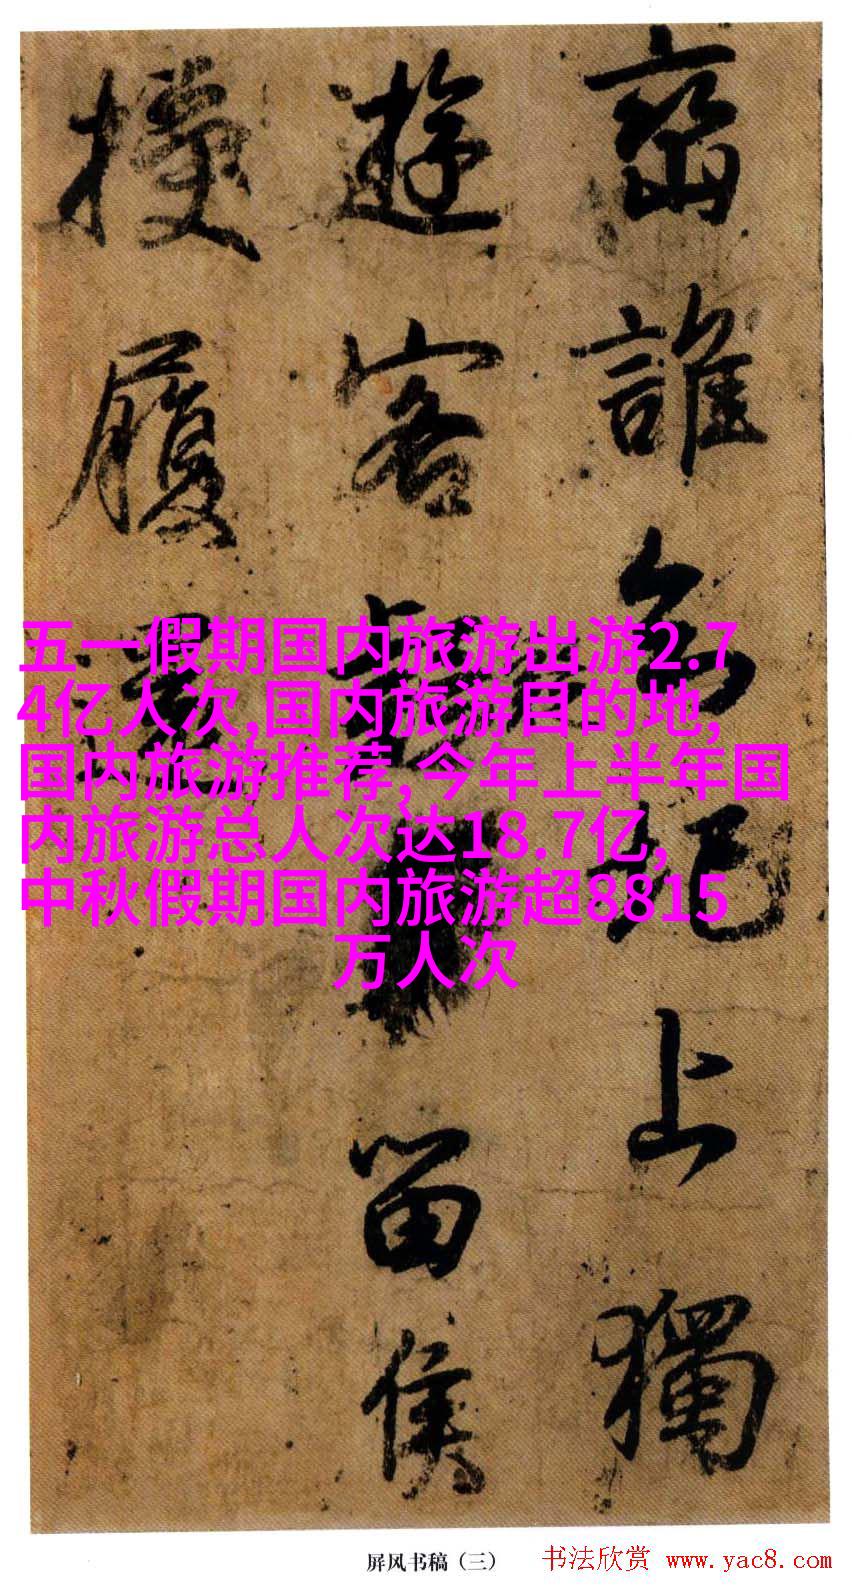 誰圯上獨
遊客留侯
履
五一假期国内旅游出游2.7
4亿人次,国内旅游目的地,
国内旅游推荐,今年上半年国
内旅游总人次达18.7亿,
中秋假期国内旅游超8815
万人次
屏风书稿（三）
书法欣赏 www.yac8.com